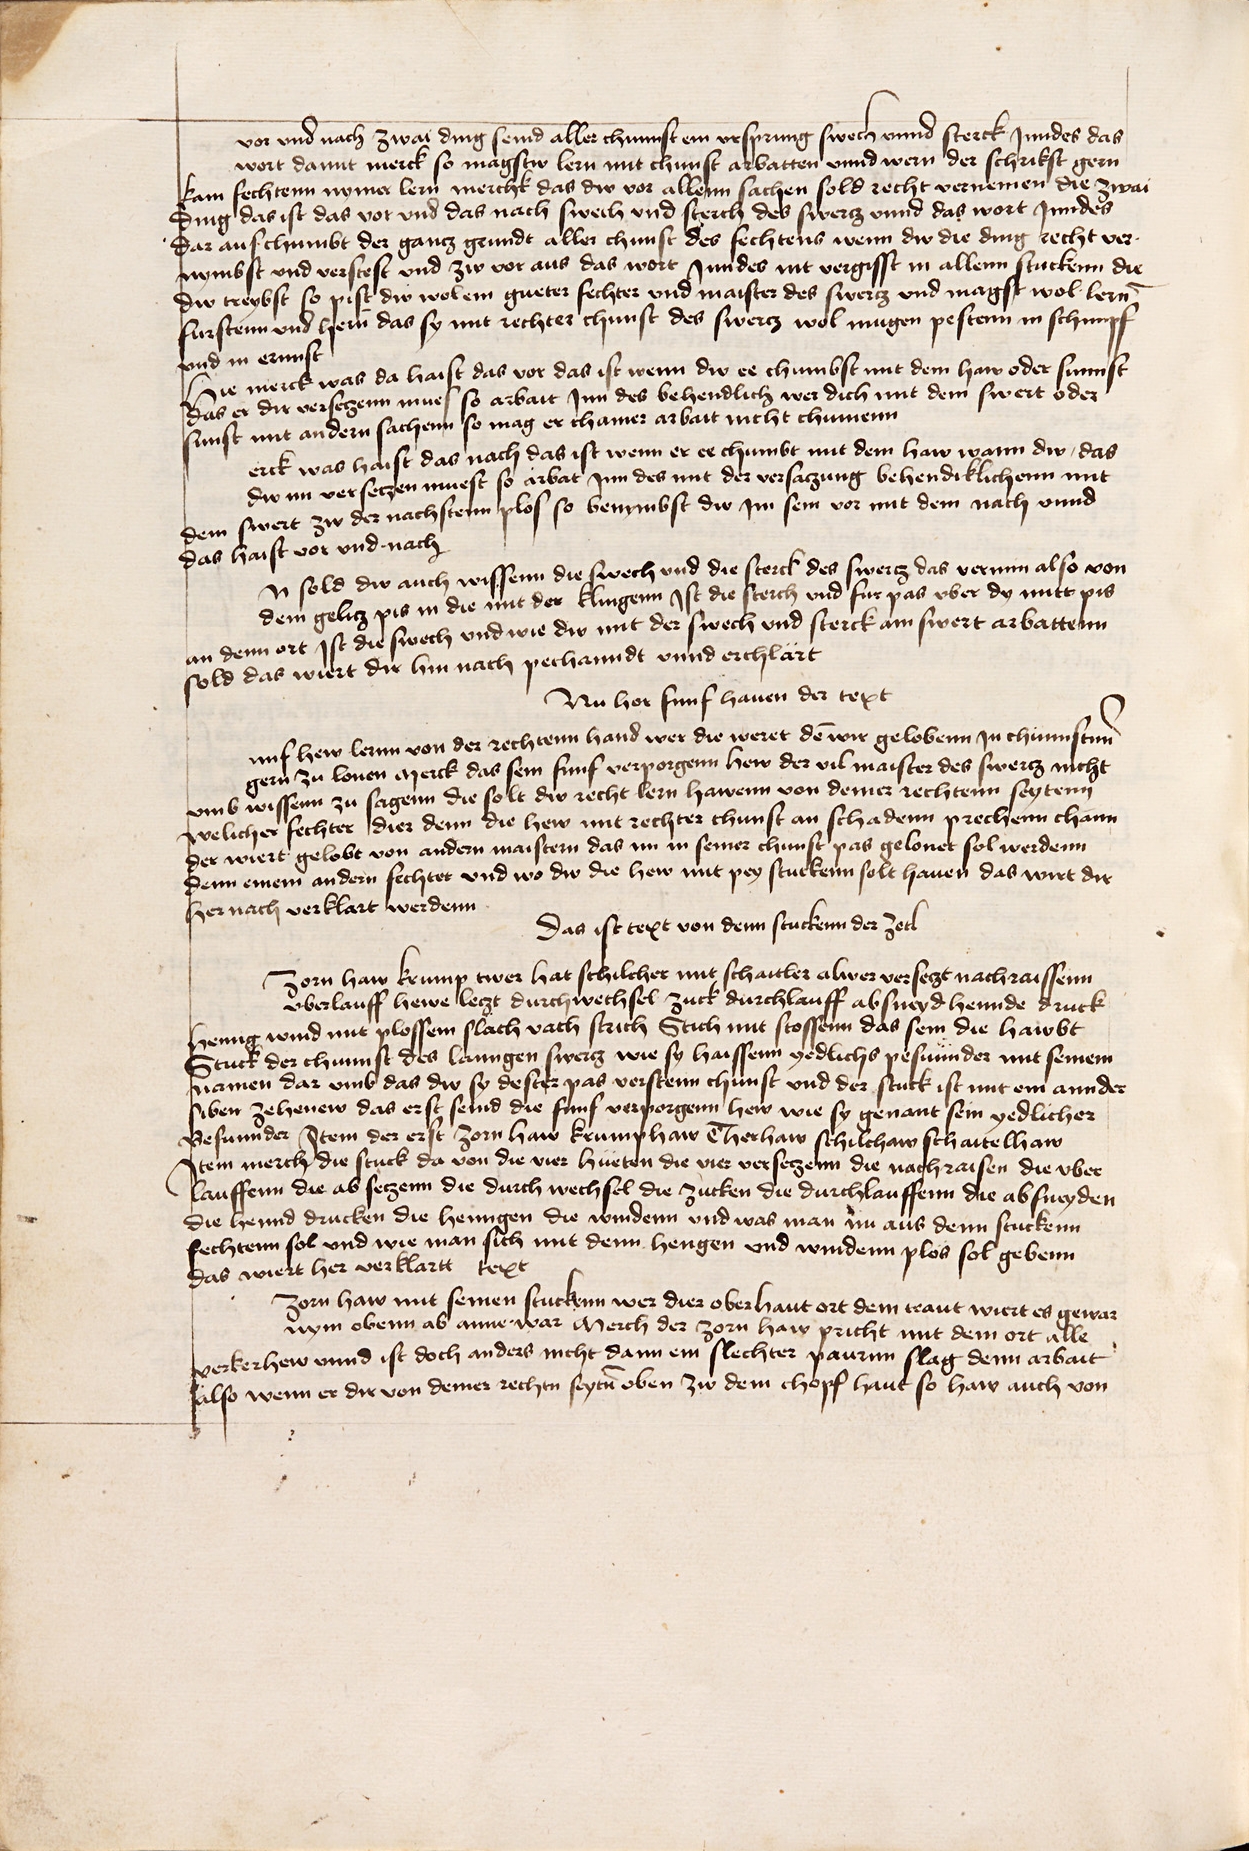 vor vnd nach zwai ding seind aller chunnst ein vrsprung swech vnnd sterck Inndes das
wort damit merck so magstw lern mit chunst arbatten vnnd wern der schrikst gern
kain fechtenn nymer lern merchk das dw vor allenn sachen sold recht vernemen die zwai
ding das ist das vor vnd das nach swech vnd sterch des swercz vnnd das wort Inndes
dar aus chumbt der gancz grundt aller chunst des fechtens wenn dw die ding recht ver-
nymbst vnd verstest vnd zw vor aus das wort Inndes nit vergisst in allenn stuckenn die
dw treybst so pist dw wol ein gueter fechter vnd maister des swercz vnd magst wol lern̄
furstenn vnd hern̄ das sy mit rechter chunst des swercz wol mugen pestenn in schimpf
vnd in ernnst
Hie merck was da haist das vor das ist wenn dw ee chumbst mit dem haw oder sunnst
das er dir versetzenn mues so arbait Inn des behendlich wer dich mit dem swert oder
sunst mit andern sachenn so mag er chainer arbait nicht chumenn
erck was haist das nach das ist wenn er ee chumbt mit dem haw wann dw / das
dw im versetzen muest so arbat Inn des mit der versaczung behendiklichenn mit
dem swert zw der nachstenn plos so benymbst dw Im sein vor mit dem nach vnnd
das haist vor vnd nach
N sold dw auch wissenn die swech vnd die sterck des swercz das vernim also von
dem gelicz pis in die mit der klingenn Ist die sterch vnd fur pas vber dy mitt pis
an denn ort Ist die swech vnd wie dw mit der swech vnd sterck am swert arbattenn
sold das wiert dir hin nach pechanndt vnnd erchlärt
Nu hor funf hauen der text
unf hew lernn von der rechtenn hand wer die weret de᷃ wir gelobenn In chunnstnn
gern zu lonen Merck das sein funf verporgenn hew der vil maister des swercz nicht
vmb wissenn zu sagenn die solt dw recht lern hawenn von deiner rechtenn seytenn
welicher fechter dier denn die hew mit rechter chunst an schadenn prechenn chann
der wiert gelobt von andern maistern das im in seiner chunst pas gelonet sol werdenn
denn einem andern fechter vnd wo dw die hew mit pey stuckenn solt hauen das wirt dir
her nach verklart werdenn
Das ist text von denn stuckenn der zetl
Zorn haw krump twer hat schilcher mit schaitler alwer versezt nachraissenn
vberlauff hewe leczt durchwechsel zuck durchlauff absneyd hennde druck
heng wind mit plossenn slach vach strich Stich mit stossenn das sein die hawbt
Stuck der chunnst des lanngen swercz wie sy haissenn yedlichs pesunnder mit seinem
namen dar vmb das dw sy dester pas verstenn chunst vnd der stuck ist mit ein annder
siben zehenew das erst seind die funf verporgenn hew wie sy genant sein yedlicher
Besunnder Item der erst zorn haw krumphaw Twerhaw schilchaw schaitelhaw
Item merch die stuck da von die vier hüeten die vier versetzenn die nachraisen die vber
lauffenn die ab setzenn die durch wechsel die zucken die durchlauffenn die absneyden
die hennd drucken die henngen die windenn vnd was man nu aus denn stuckenn
fechtenn sol vnd wie man sich mit denn hengen vnd windenn plos sol gebenn
das wiert her verklartt text
Zorn haw mit seinen stuckenn wer dier oberhaut ort dem traut wiert es gewar
nym obenn ab anne war Merch der zorn haw pricht mit dem ort alle
verkerhew vnnd ist doch anders nicht dann ein slechter paurnn slag denn arbait
also wenn er dir von deiner rechtn seytn̄ oben zw dem chopf haut so haw auch von